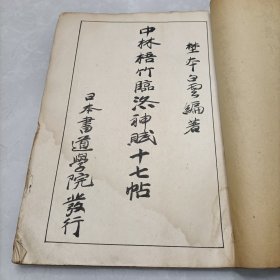 埜本白雲編著
中林梧竹臨洛神賦十七帖
日本書道學院發行